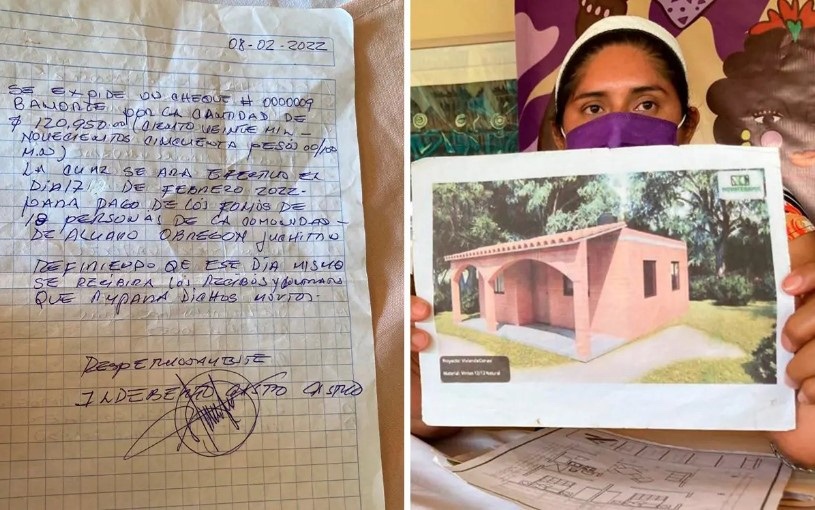 08-02-2022
SE EXPIDE UN CHEQUE # 0000009
BANORTE POR LA CANTIDAD DE
$ 120,950.00 (CIENTO VEINTE MIL -
NOVECIENTOS CINCUENTA PESOS 00/100
M.N)
LA CUAL SE ARA EFECTIVO EL
DIA 17 DE FEBRERO 2022-
PARA PAGO DE LOS FONDOS DE
PERSONAS DE LA COMUNIDAD -
DE ALVARO OBREGON JUCHITAN
DEFINIENDO QUE ESE DIA MISMO
SE RECIBIRA LOS RECIBOS Y
QUE AMPARA DICHOS MONTOS.
RESPETUOSAMENTE
ILDEBERTO CASTRO CASTILLO
Proyecto: Vivienda
Material: 12/12 Natural